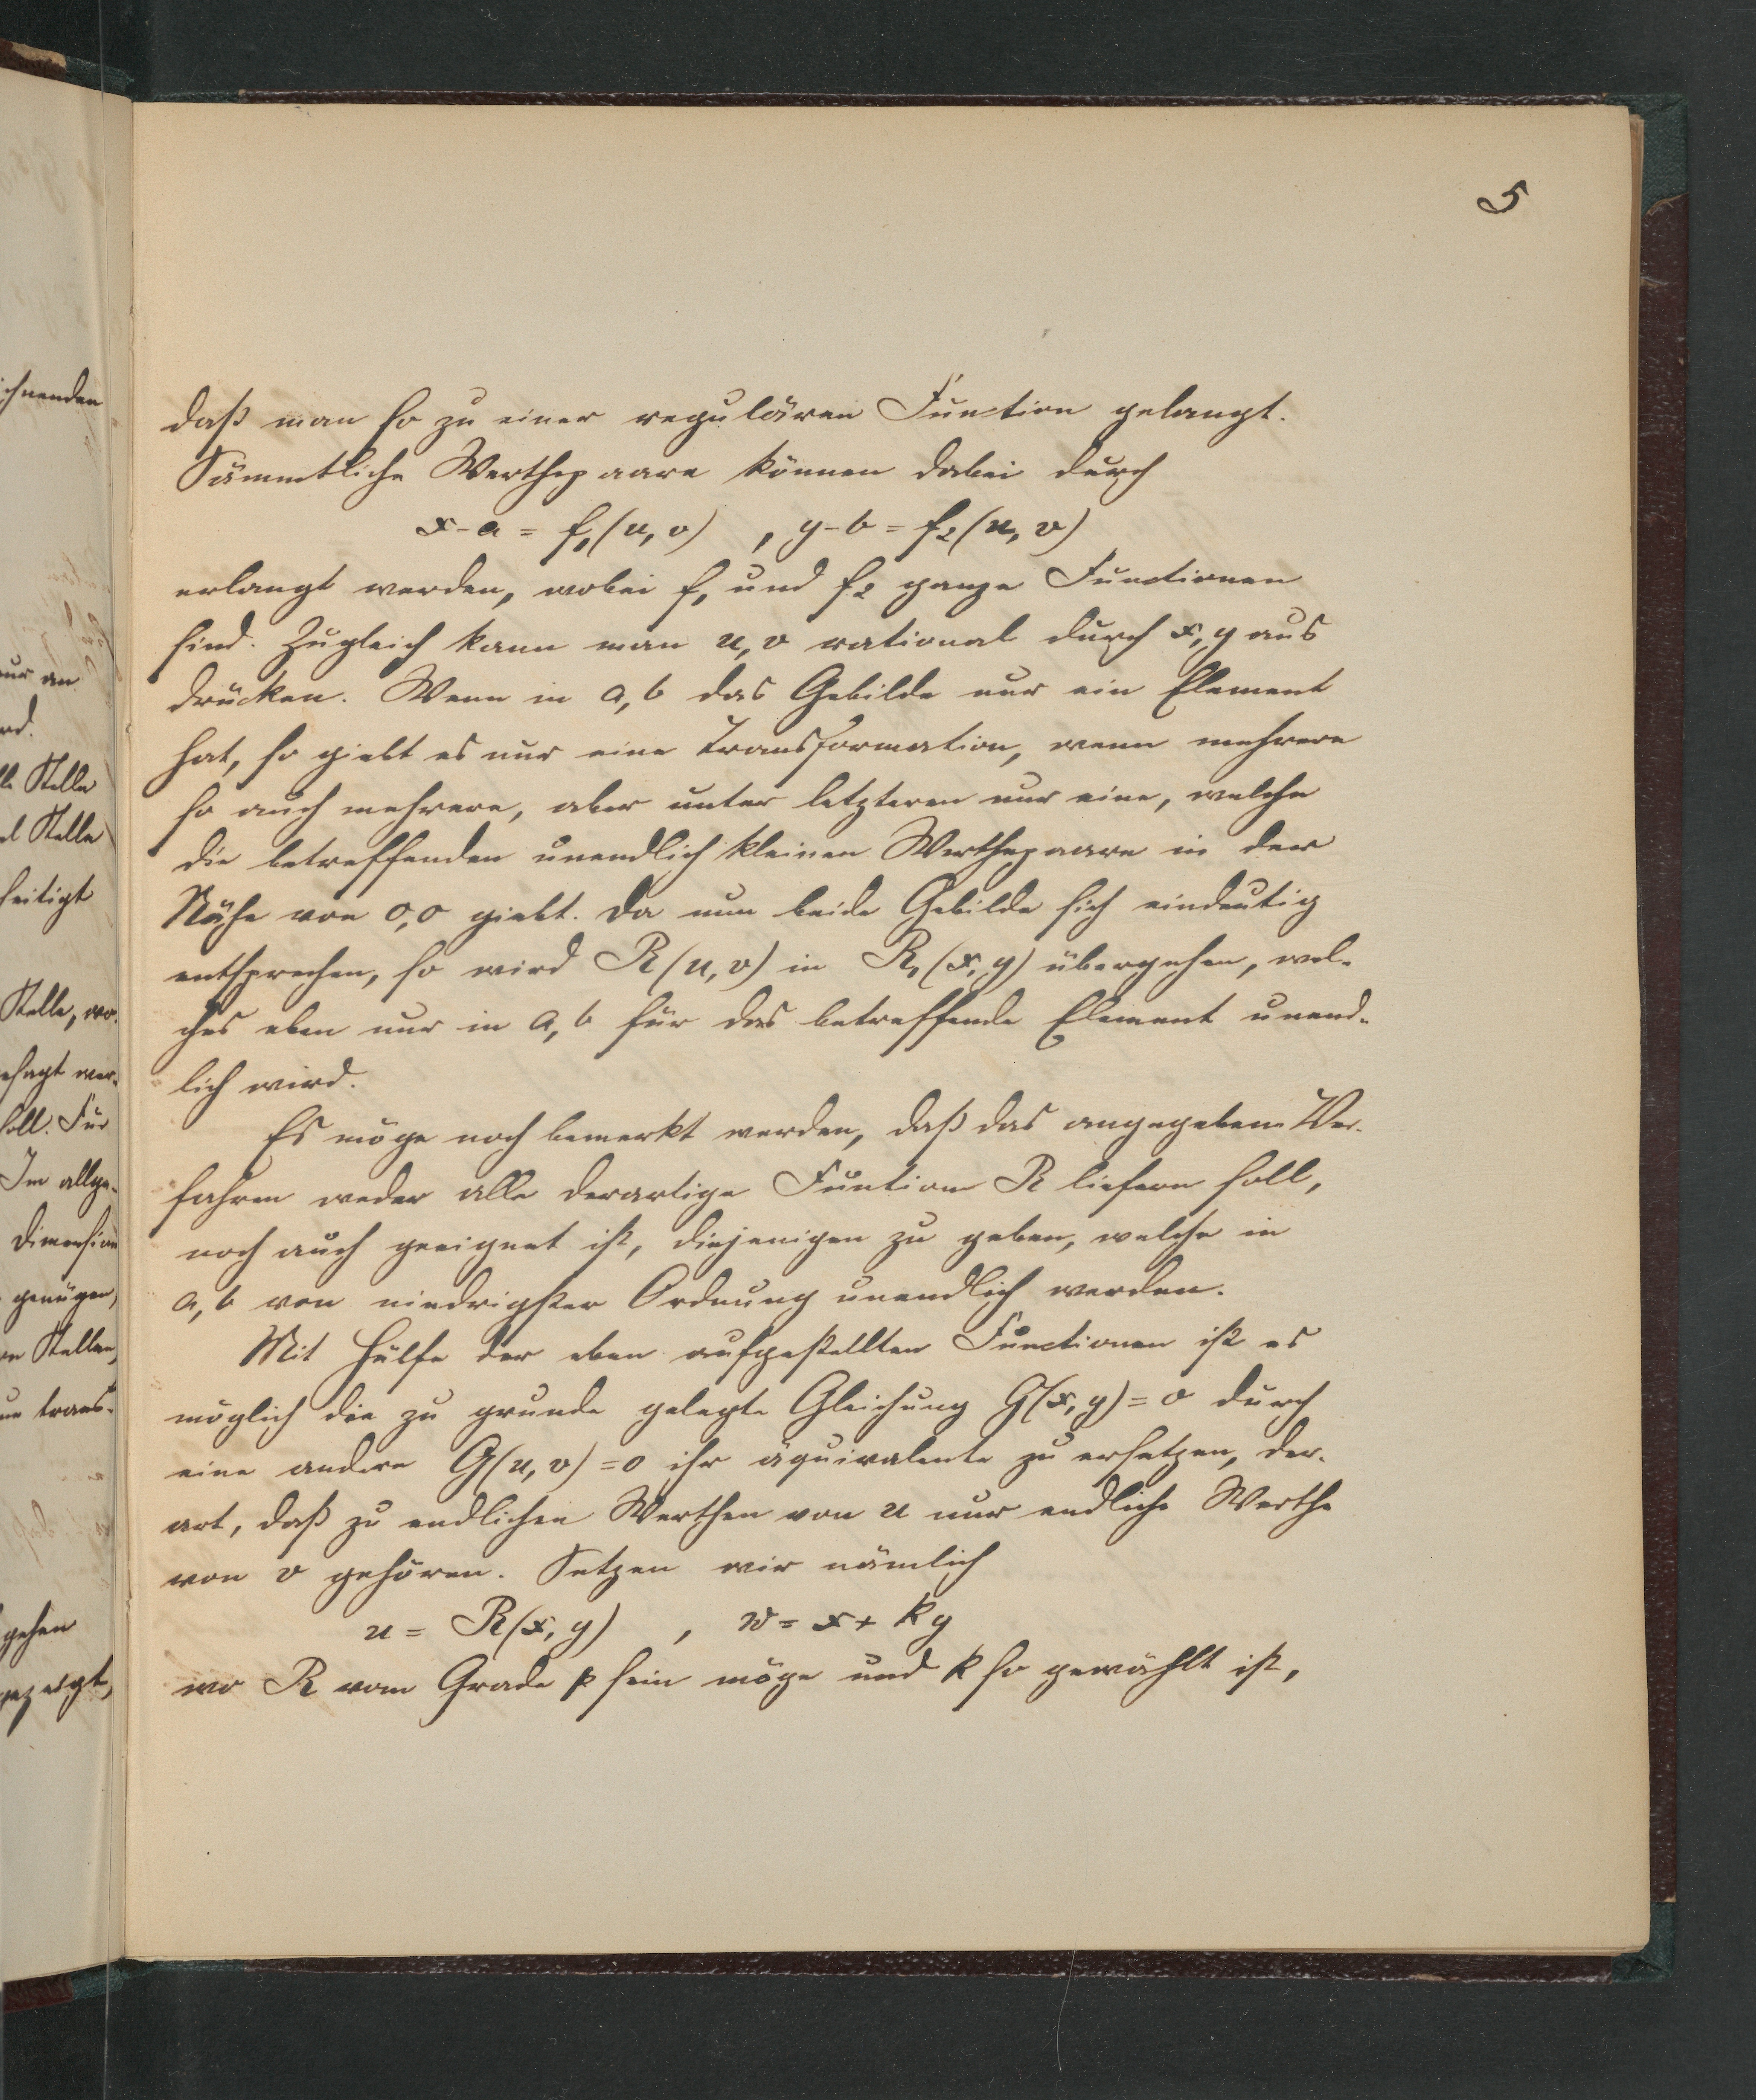 5
daß man so zu einer regulären Function gelangt.
Sämmtliche Werthepaare können dabei durch
x-a = f₁(u, v) , y-b = f₂(u, v)
erlangt werden, wobei f₁ und f₂ ganze Functionen
sind. Zugleich kann man u, v rational durch x, y aus
drücken. Wenn in a, b das Gebilde nur ein Element
hat, so giebt es nur eine Transformation, wenn mehrere
so auch mehrere, aber unter letzteren nur eine, welche
die betreffenden unendlich kleinen Werthepaare in der
Nähe von 0,0 giebt. Da nun beide Gebilde sich eindeutig
entsprechen, so wird R(u, v) in R₁(x, y) übergehen, wel-
ches eben nur in a, b für das betreffende Element unend-
lich wird.
Es möge noch bemerkt werden, daß das angegebene Ver-
fahren weder alle derartige Funtion R liefern soll,
noch auch geeignet ist, diejenigen zu geben, welche in
a, b von niedrigster Ordnung unendlich werden.
Mit Hülfe der eben aufgestellten Functionen ist es
möglich die zu grunde gelegte Gleichung G(x, y) = 0 durch
eine andere G(u, v) = 0 ihr äquivalente zu ersetzen, der-
art, daß zu endlichen Werthen von u nur endliche Werthe
von v gehören. Setzen wir nämlich
u = R(x, y) , w = x + ky
wo R vom Grade p sein möge und k so gewählt ist,